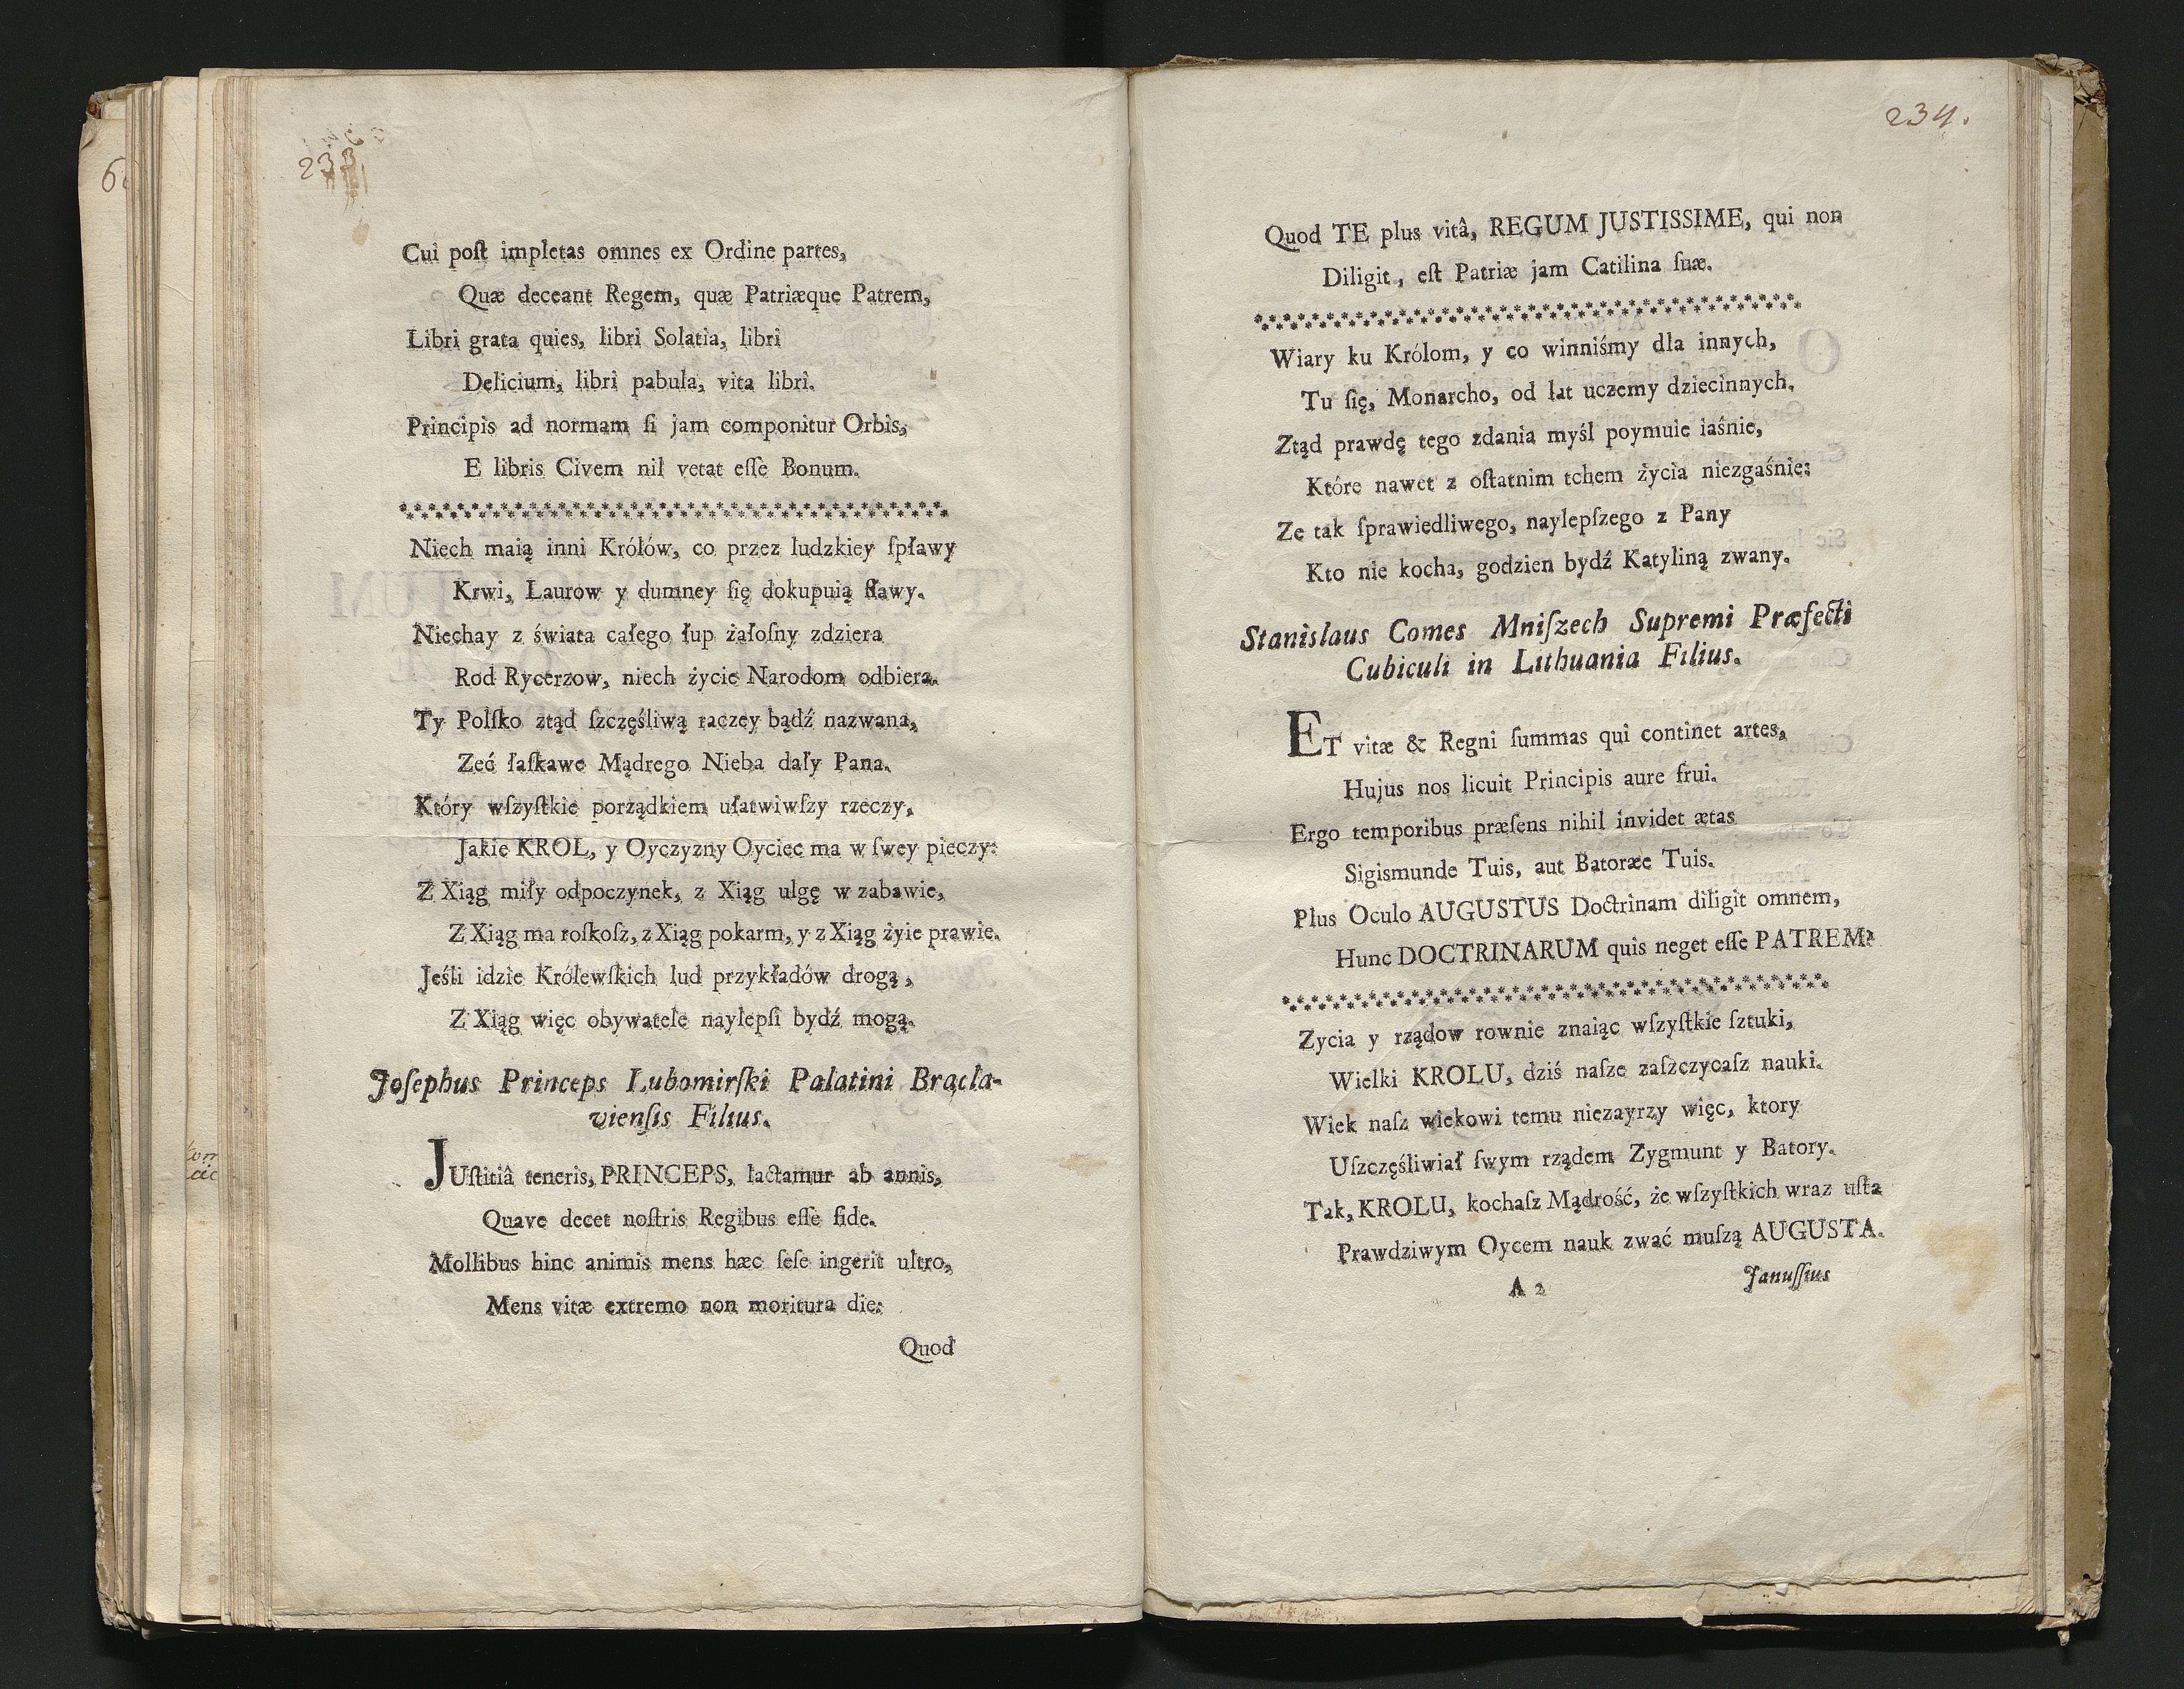 233
Cui poſt impletas omnes ex Ordine partes,
Quæ deceant Regem, quæ Patriæque Patrem,
Libri grata quies, libri Solatia, libri
Delicium, libri pabula, vita libri.
Principis ad normam ſi jam componitur Orbis,
E libris Civem nil vetat eſſe Bonum.
Niech maią inni Królów, co przez ludzkiey ſpławy
Krwi, Laurow y dumney ſię dokupuią ſławy.
Niechay z świata całego łup żałoſny zdziera
Rod Rycerzow, niech życie Narodom odbiera.
Ty Polſko ztąd ſzczęśliwą raczey bądź nazwana,
Zeć łaſkawe Mądrego Nieba dały Pana.
Który wſzyſtkie porządkiem ułatwiwſzy rzeczy,
Jakie KROL, y Oyczyzny Oyciec ma w ſwey pieczy:
Z Xiąg miły odpoczynek, z Xiąg ulgę w zabawie,
Z Xiąg ma roſkoſz, z Xiąg pokarm, y z Xiąg żyie prawie.
Jeśli idzie Królewſkich lud przykładów drogą,
Z Xiąg więc obywatele naylepſi bydź mogą.
Joſephus Princeps Lubomirſki Palatini Bracla-
vienſis Filius.
JUſtitiâ teneris, PRINCEPS, lactamur ab annis,
Quave decet noſtris Regibus eſſe fide.
Mollibus hinc animis mens hæc ſeſe ingerit ultro,
Mens vitæ extremo non moritura die:
Quod
234.
Quod TE plus vitâ, REGUM JUSTISSIME, qui non
Diligit, eſt Patriæ jam Catilina ſuæ.
Wiary ku Królom, y co winniśmy dla innych,
Tu ſię, Monarcho, od lat uczemy dziecinnych.
Ztąd prawdę tego zdania myśl poymuie iaśnie,
Które nawet z oſtatnim tchem życia niezgaśnie:
Ze tak ſprawiedliwego, naylepſzego z Pany
Kto nie kocha, godzien bydź Katyliną zwany.
Stanislaus Comes Mniſzech Supremi Præfecti
Cubiculi in Lithuania Filius.
ET vitæ & Regni ſummas qui continet artes,
Hujus nos licuit Principis aure frui.
Ergo temporibus præſens nihil invidet ætas
Sigismunde Tuis, aut Batoræe Tuis.
Plus Oculo AUGUSTUS Doctrinam diligit omnem,
Hunc DOCTRINARUM quis neget eſſe PATREM?
Zycia y rządow rownie znaiąc wſzyſtkie ſztuki,
Wielki KROLU, dziś naſze zaſzczycaſz nauki.
Wiek naſz wiekowi temu niezayrzy więc, ktory
Uſzczęśliwiał ſwym rządem Zygmunt y Batory.
Tak, KROLU, kochaſz Mądrość, że wſzyſtkich wraz uſta
Prawdziwym Oycem nauk zwać muſzą AUGUSTA.
A 2
Januſſius